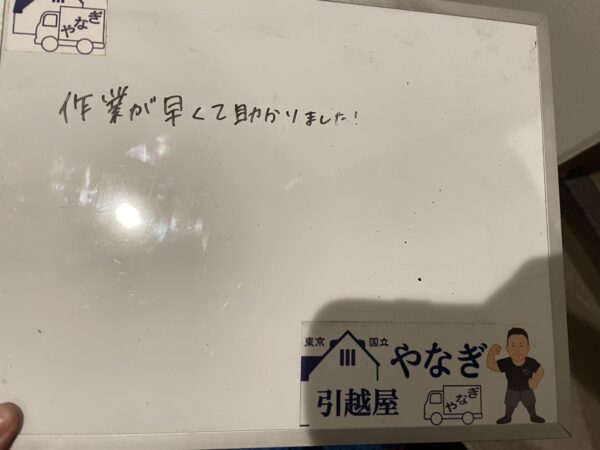 やなぎ
作業が早くて助かりました!
東京 国立
やなぎ
引越屋
やなぎ